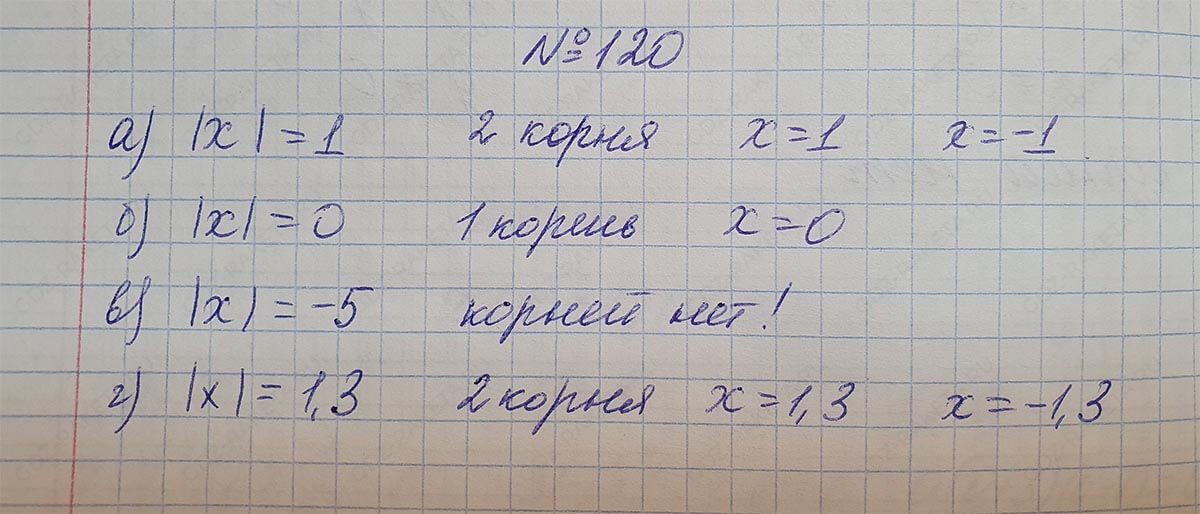 №120
а) |x| = 1 2 корня x = 1 x = -1
б) |x| = 0 1 корень x = 0
в) |x| = -5 корней нет!
г) |x| = 1,3 2 корня x = 1,3 x = -1,3